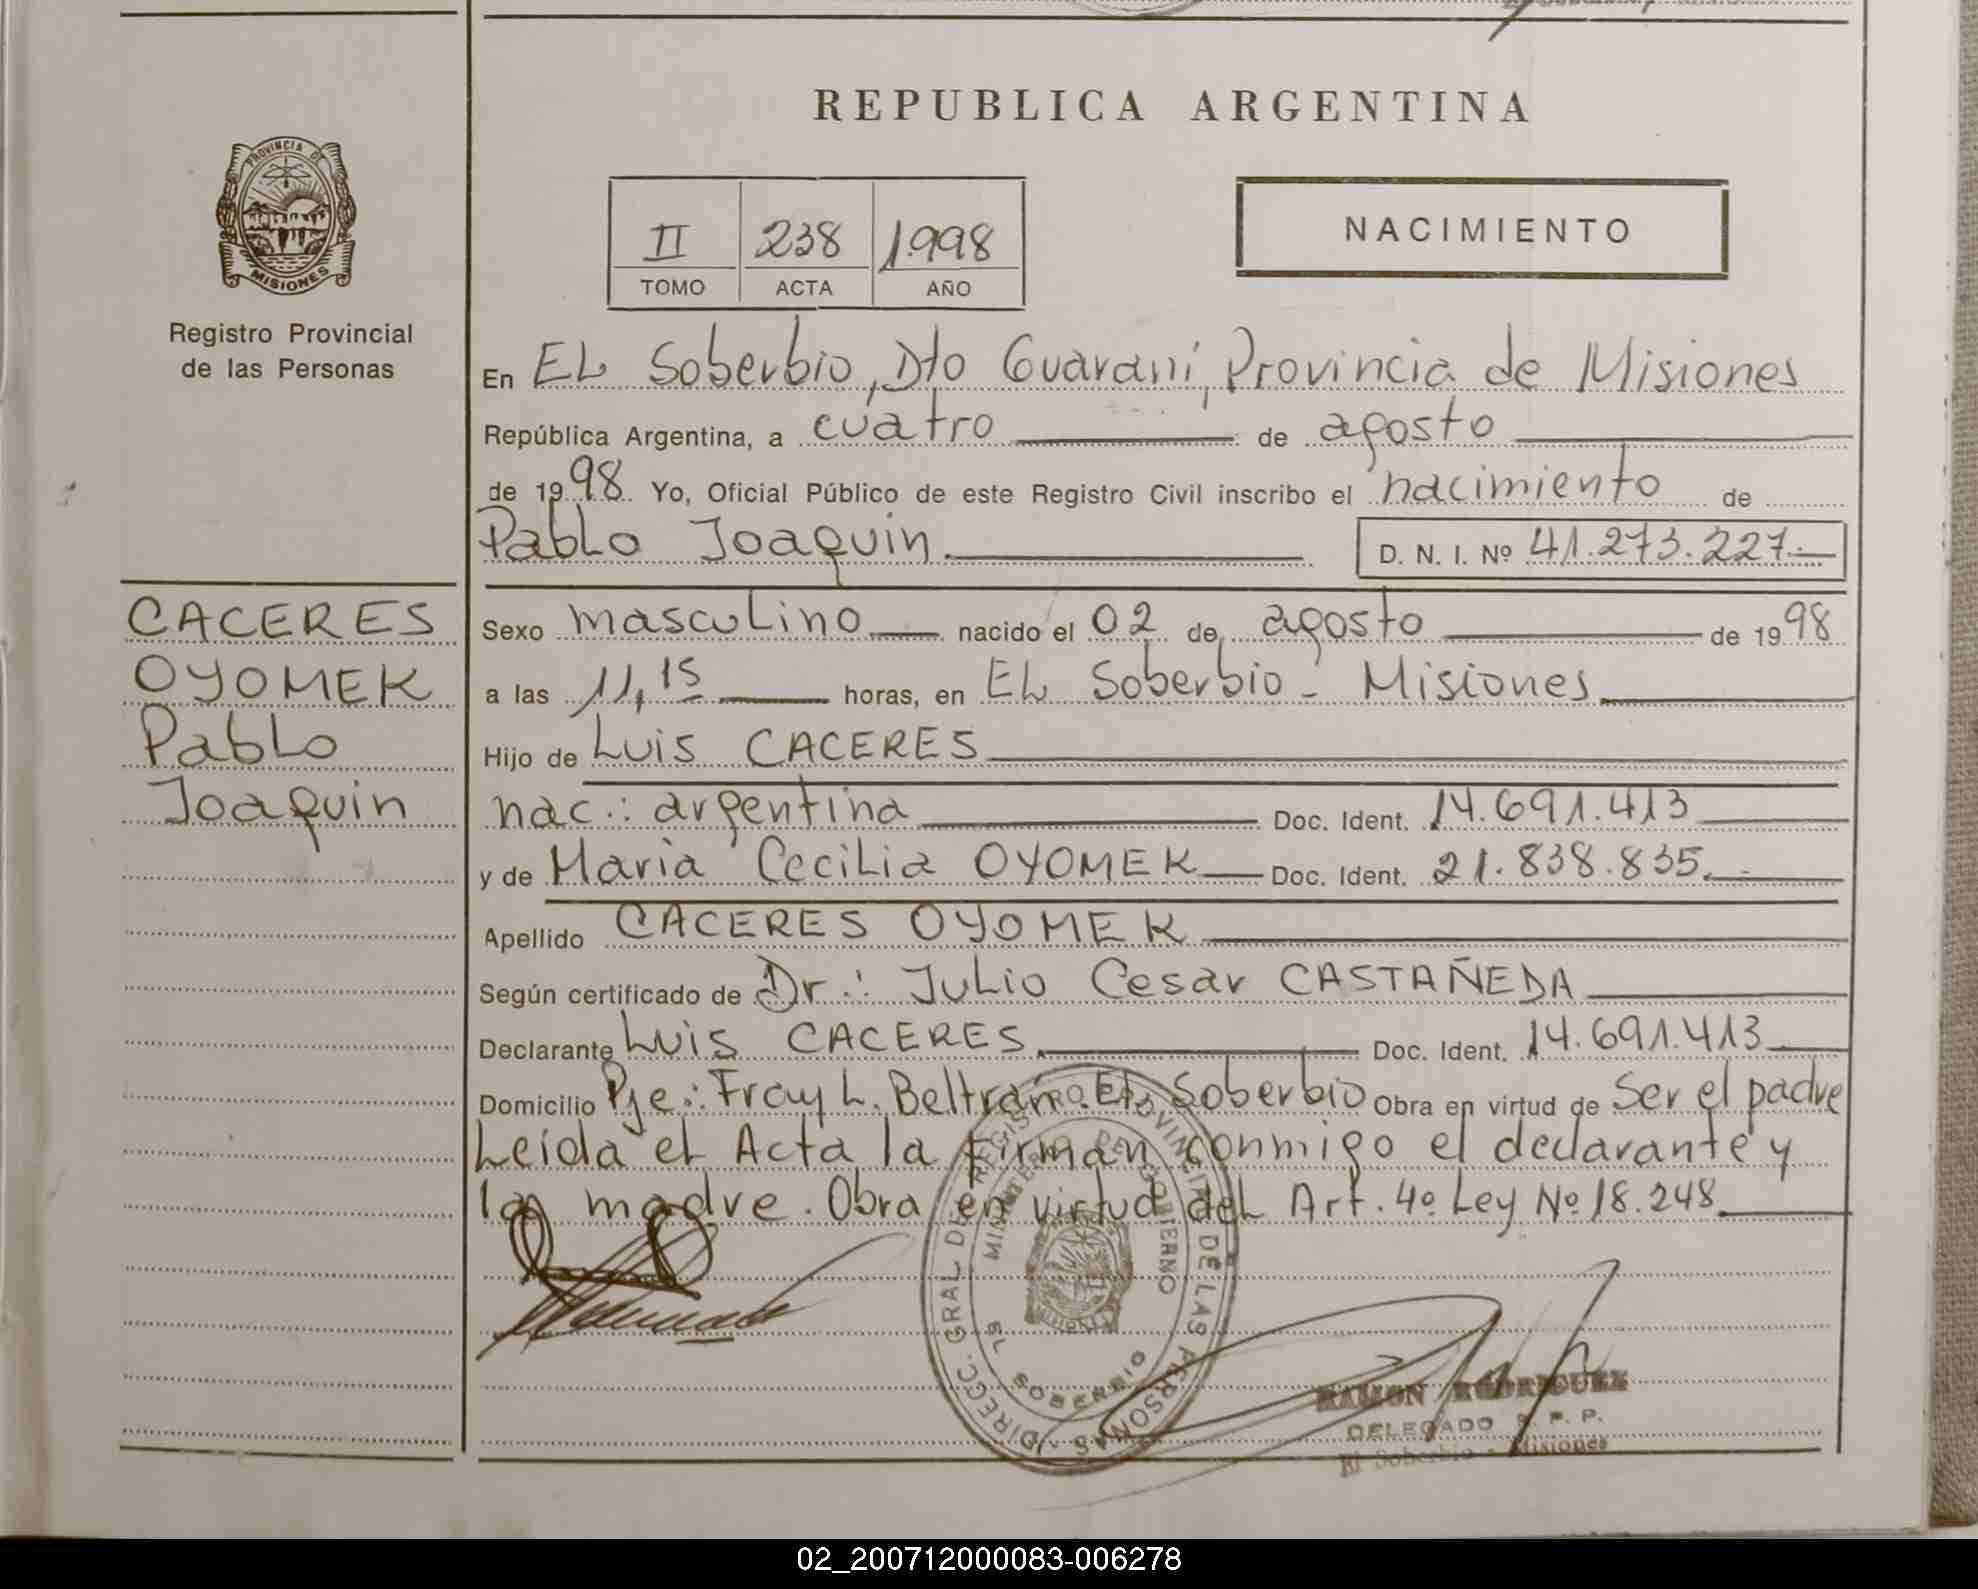 REPUBLICA ARGENTINA
PROVINCIA DE
MISIONES
Registro Provincial
de las Personas
II 238 1.998
TOMO ACTA AÑO
NACIMIENTO
En EL Soberbio, Dto Guaraní, Provincia de Misiones
República Argentina, a cuatro de agosto
de 1998 Yo, Oficial Público de este Registro Civil inscribo el nacimiento de
Pablo Joaquin. D. N. I. Nº 41.273.227.-
CACERES
OYOMEK
Pablo
Joaquin
Sexo masculino nacido el 02 de agosto de 1998
a las 11,15 horas, en EL Soberbio - Misiones
Hijo de Luis CACERES
nac.: argentina Doc. Ident. 14.691.413
y de Maria Cecilia OYOMEK Doc. Ident. 21.838.835.
Apellido CACERES OYOMEK
Según certificado de Dr.: Julio Cesar CASTAÑEDA
Declarante Luis CACERES Doc. Ident. 14.691.413
Domicilio Pje: Fray L. Beltrán. EL Soberbio Obra en virtud de Ser el padre
Leída el Acta la firman conmigo el declarante y
la madre. Obra en virtud del Art. 4º Ley Nº 18.248
DIRECC. GRAL DEL REGISTRO PROVINCIAL DE LAS PERSONAS
MINISTERIO DE GOBIERNO
EL SOBERBIO
MISIONES
RAMON RODRIGUEZ
DELEGADO R. P. P.
El Soberbio - Misiones
02_200712000083-006278